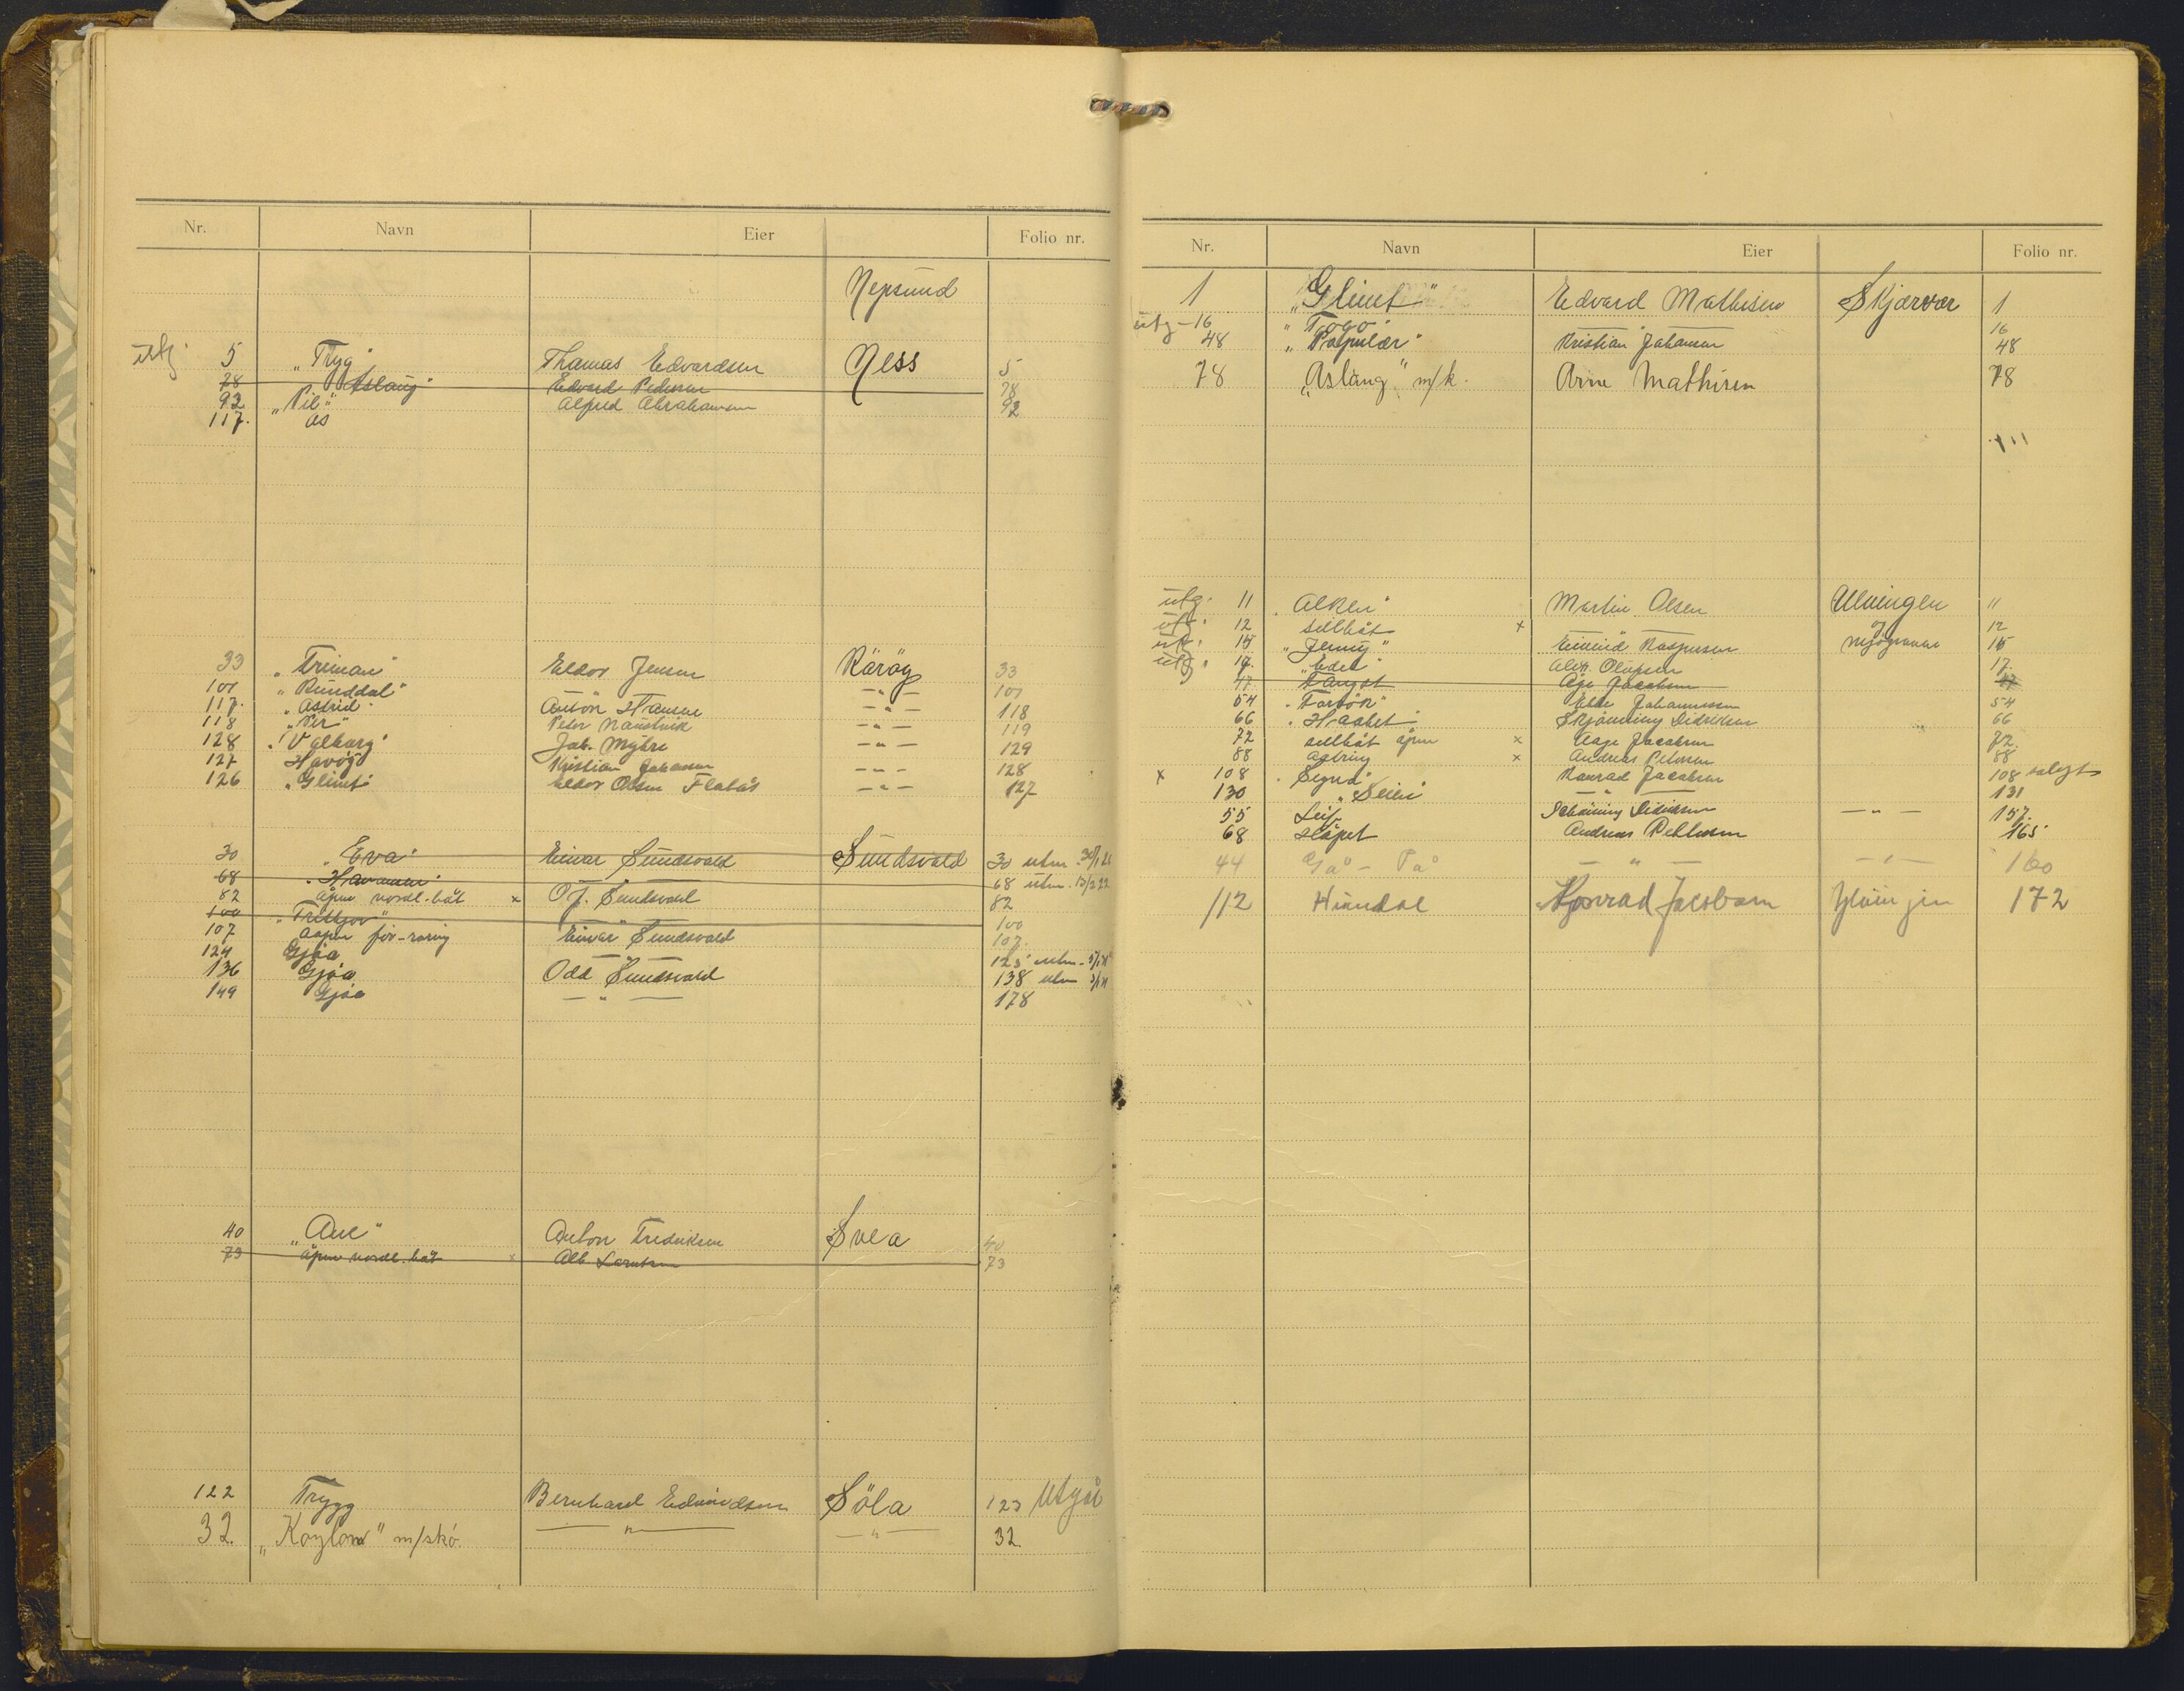 Nr. Navn Eier Folio nr.
Nepsund
utg. 5 „Tryg" Thomas Edvardsen Ness 5
78 Aslaug" Edvard Pedersen 78
92 „Pil" Alfred Abrahamsen 92
117. As
33 „Freman" Eldor Jensen Rårøy 33
101 „Runddal" — " — 101
117. „Astrid" Anton Hansen — " — 118
118 „Per" Peder Naustvik — " — 119
128 „Valborg" Joh. Myhre — " — 129
127 Havöy Kristian Johansen — " — 128
126 „Glimt" Eldor Olsen Flatås — " — 127
30 „Eva" Einar Sundsvald Sundsvald 30 utm.
68 „Havmann" 68 utm. 13/2 22
82 åpen nordl. båt x O J. Sundsvald 82
100 „Trettjov" 100
107 Aapen fir-roring Einar Sundsvald 107.
124 Gjöa — " — 125 utm.
136 Gjöa Odd Sundsvald 138 utm
149 Gjöa — " — 178
40 „Ane" Anton Fredriksen Svea 40
73 åpen nordl. båt x Alb Larntsen 73
122 Trygg Bernhard Edvindsen Söla 123 Utgår
32. „Koylow" m/skö. — " — — " — 32
Nr. Navn Eier Folio nr.
1 „Glimt" Edvard Mathisen Skjærvær 1
utg - 16 „Togo" — — 16
48 „Populær" Kristian Johansen 48
78 „Aslaug" m/k. Arne Mathisen 78
111
utg. 11 „Alken" Martin Olsen Ulvingen 11
utg. 12 sellbåt x — " — 12
utg. 15 „Jenny" Eimind Kaspersen 15
utg. 17. „Edel" Alek. Olufsen 17.
47 Fangst Åge Jacobsen 47
54 „Forsök" Ebbe Johannessen 54
66 „Haabet" Skjönning Didriksen 66
72 sellbåt åpen x Aage Jacobsen 72.
88 aatring x Andreas Petersen 88
x 108 „Signd" Konrad Jacobsen 108 solgt
130 „Seiri" — " — 131
55 Leif Schönning Didriksen — " — 157.
68 slåpet Andreas Pettersen 165
44 Gå - På — " — — " — 160
112 Hundal Konrad Jacobsen 172